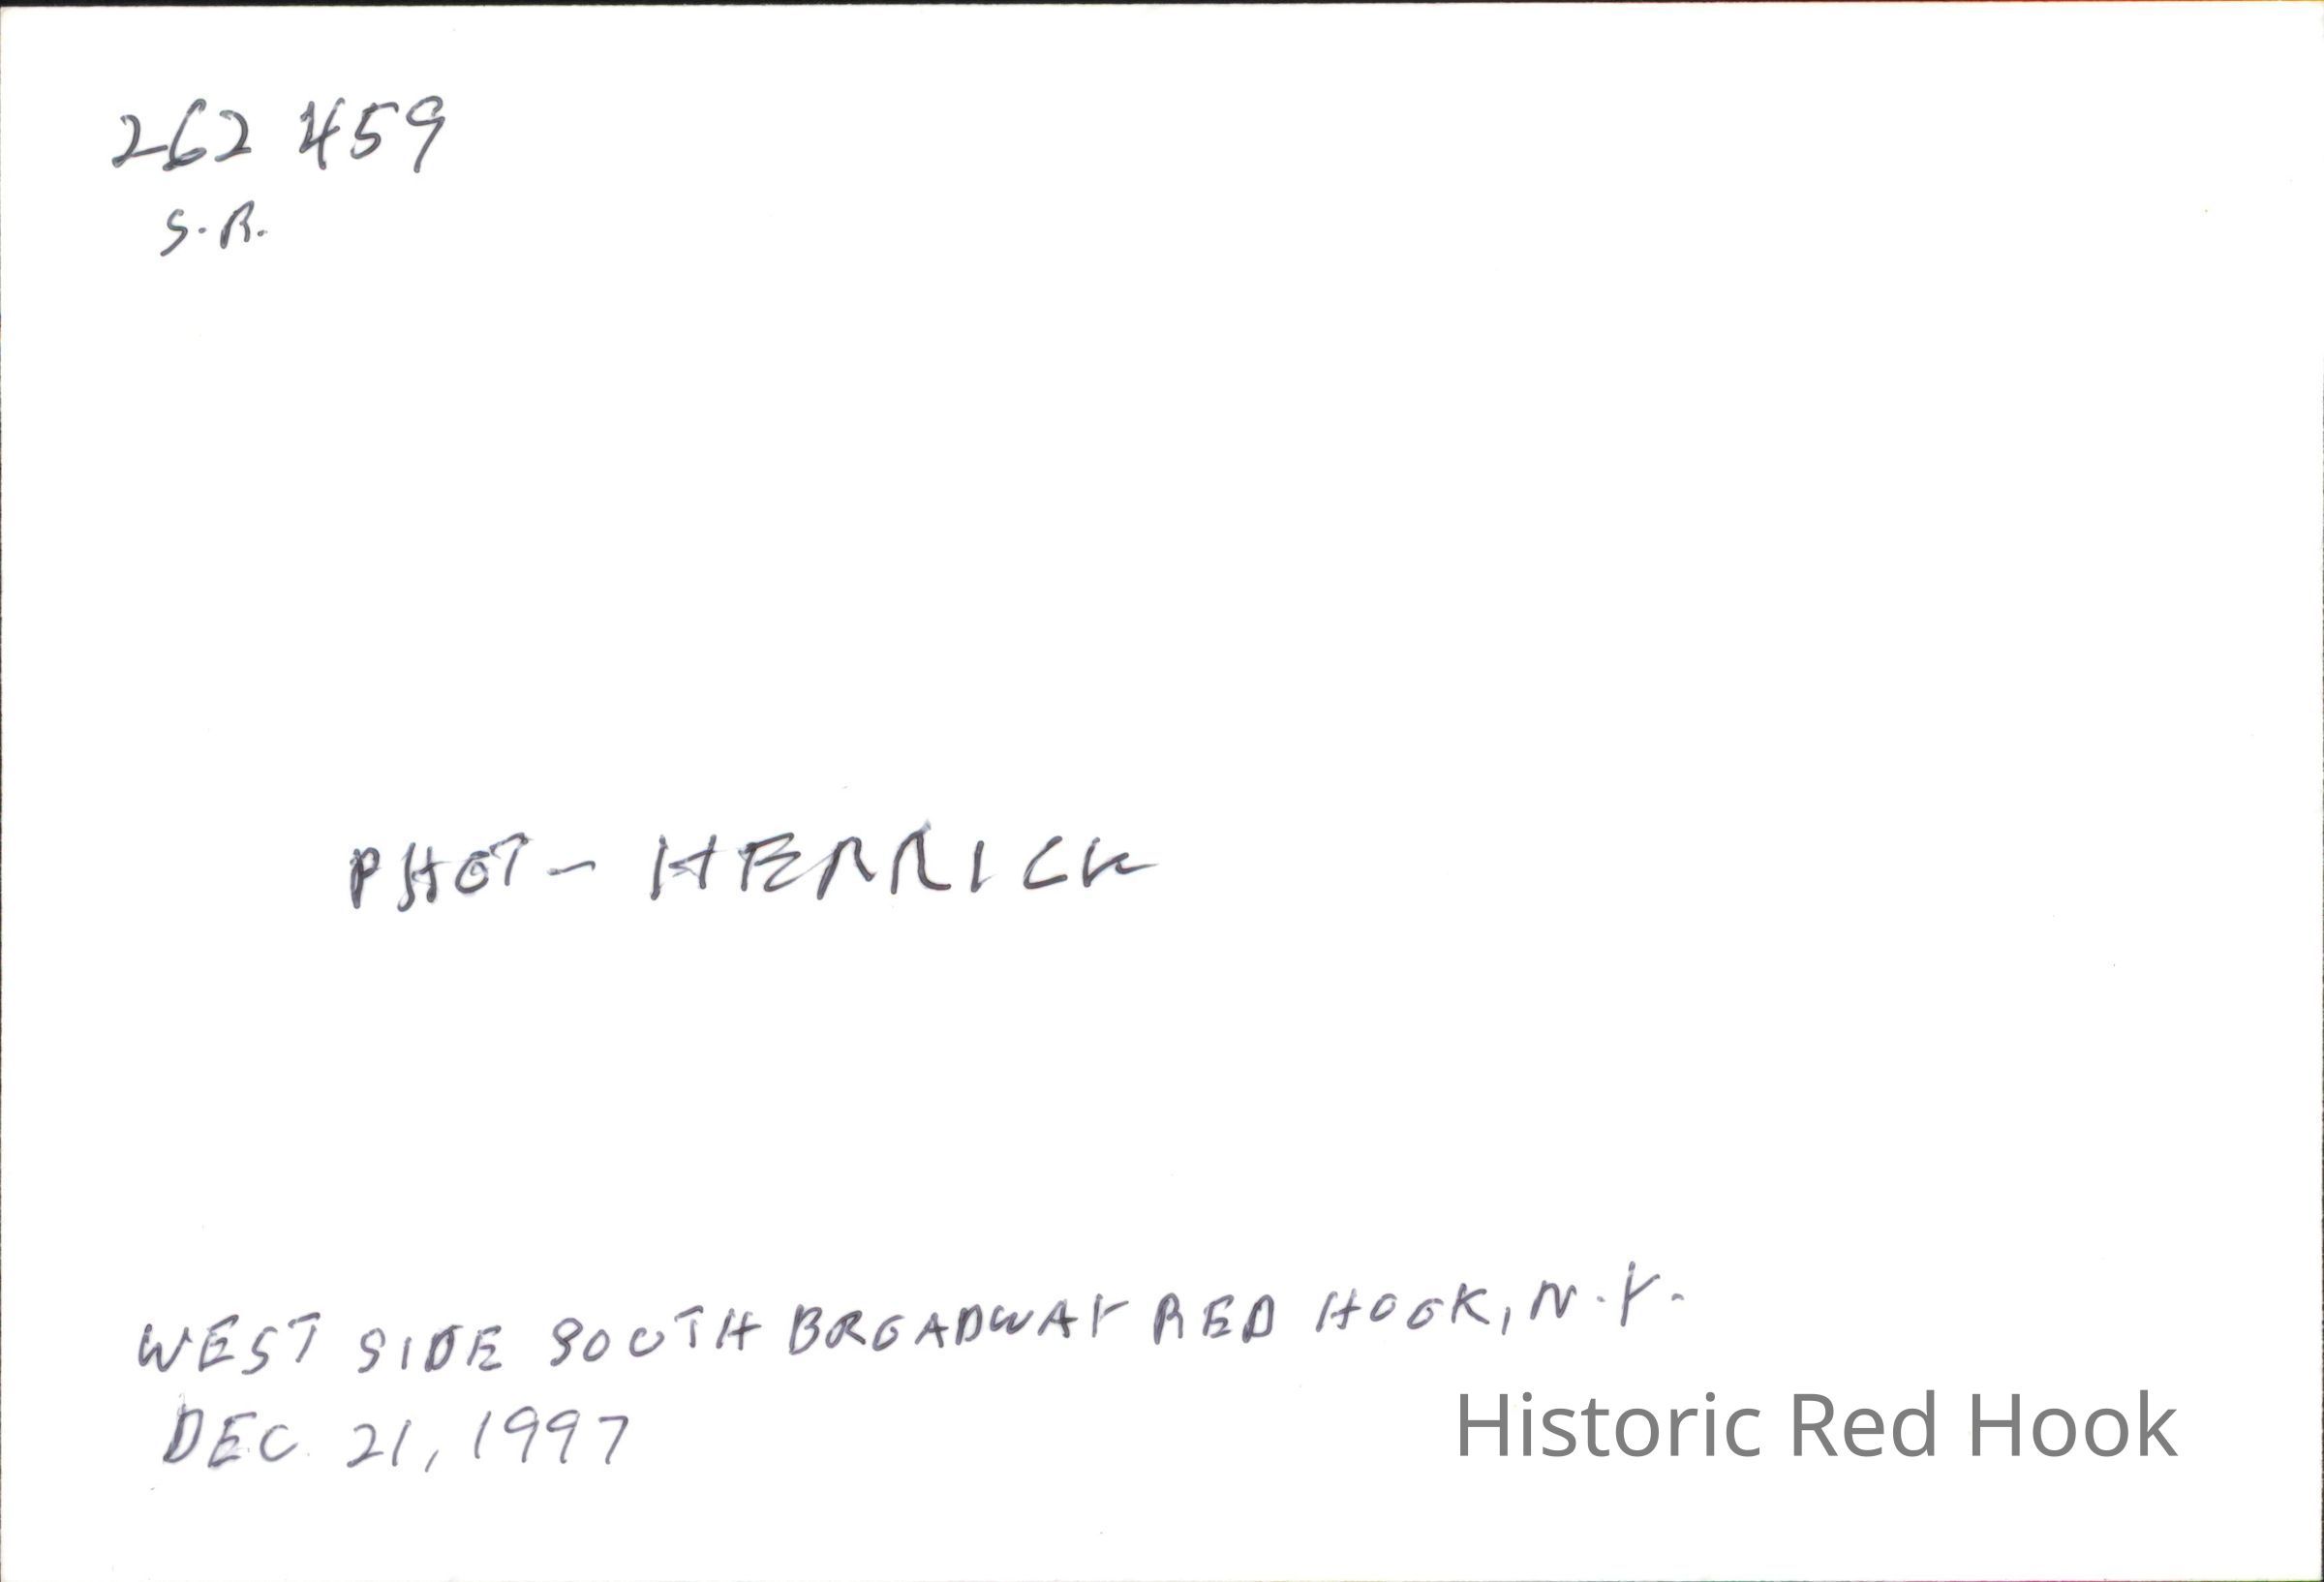 262 459
S.R.
PHOT- HERRICK
WEST SIDE SOUTH BROADWAY RED HOOK, N.Y.
DEC. 21, 1997
Historic Red Hook